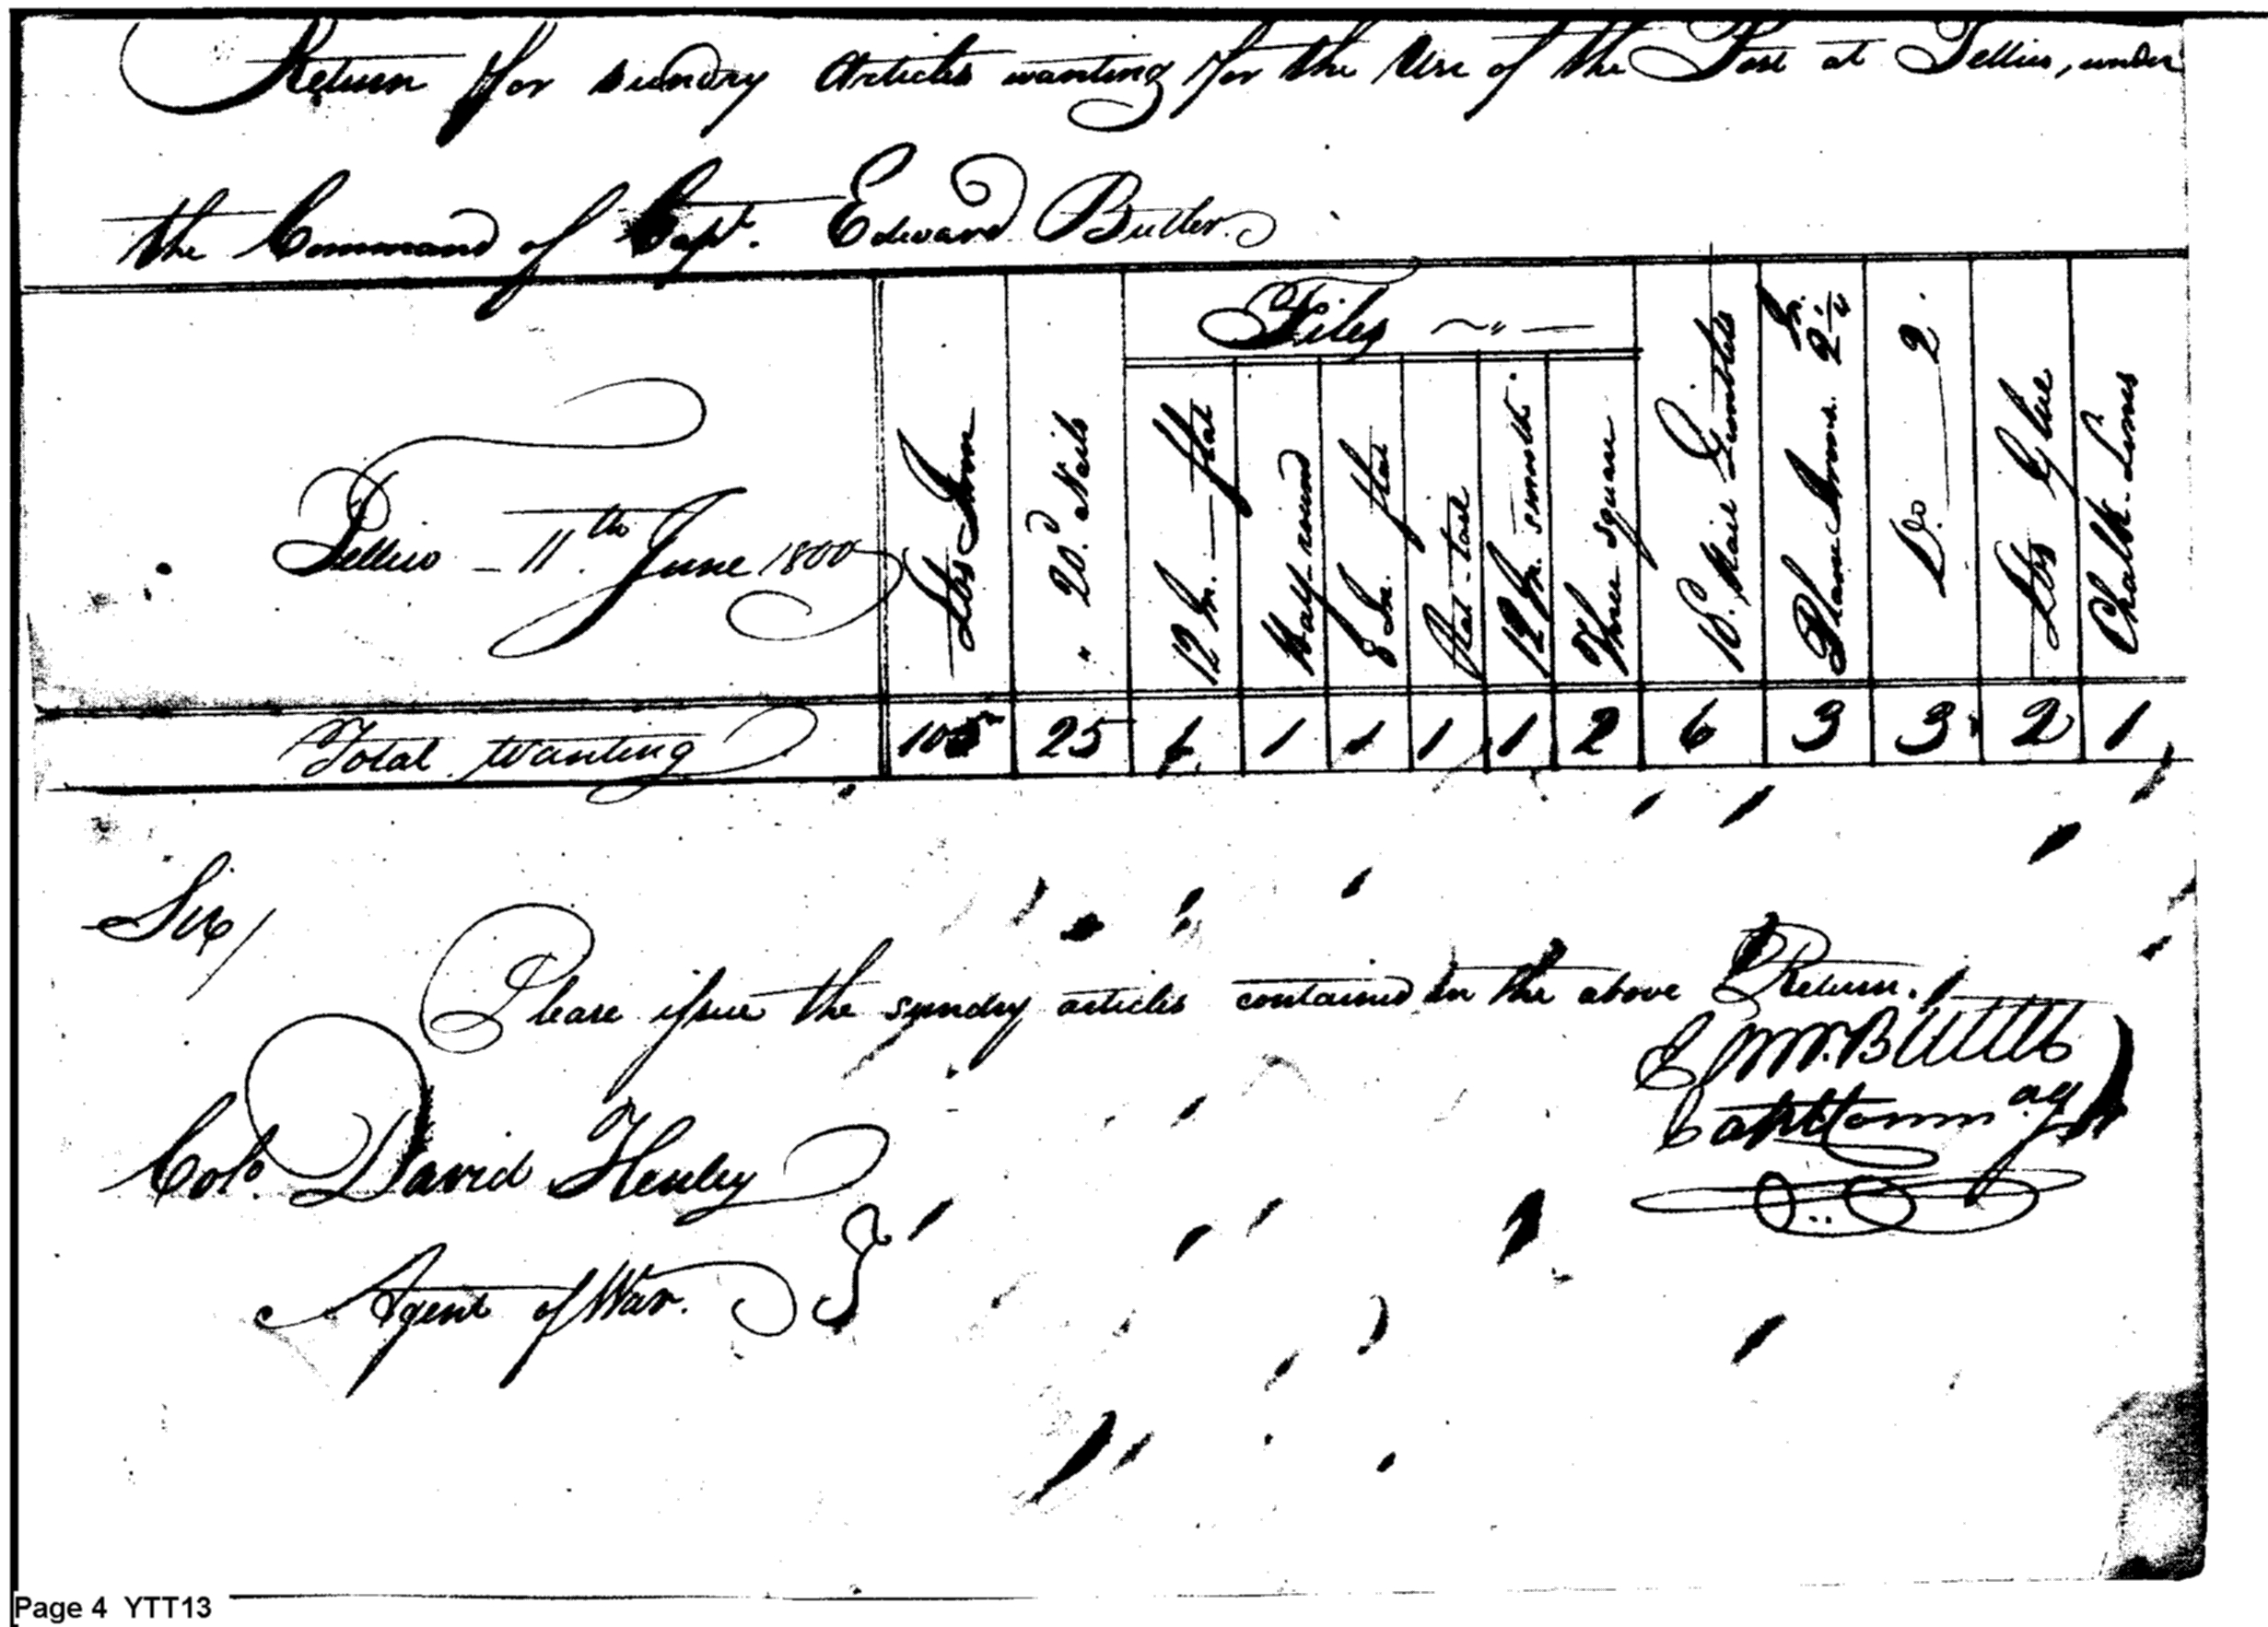 Return for sundry Articles wanting for the Use of the Post at Tellico, under
the Command of Capt. Edward Butler.
Files
Tellico - 11th June 1800
Lbs Iron
" 20d. Nails
12 In. - flat
Half-round
8 In. flat
Rat-tail
12 In. smooth.
Three square
10d. Nail Gimblets
Plane Irons. In. 2 1/4
Do. 2.
Lbs Glue
Chalk-Lines
Total Wanting 105 25 1 1 1 1 1 2 6 3 3 2 1
Sir/
Please issue the sundry articles contained in the above Return.
Butler
Colo. David Henley
Agent of War.
Page 4 YTT13